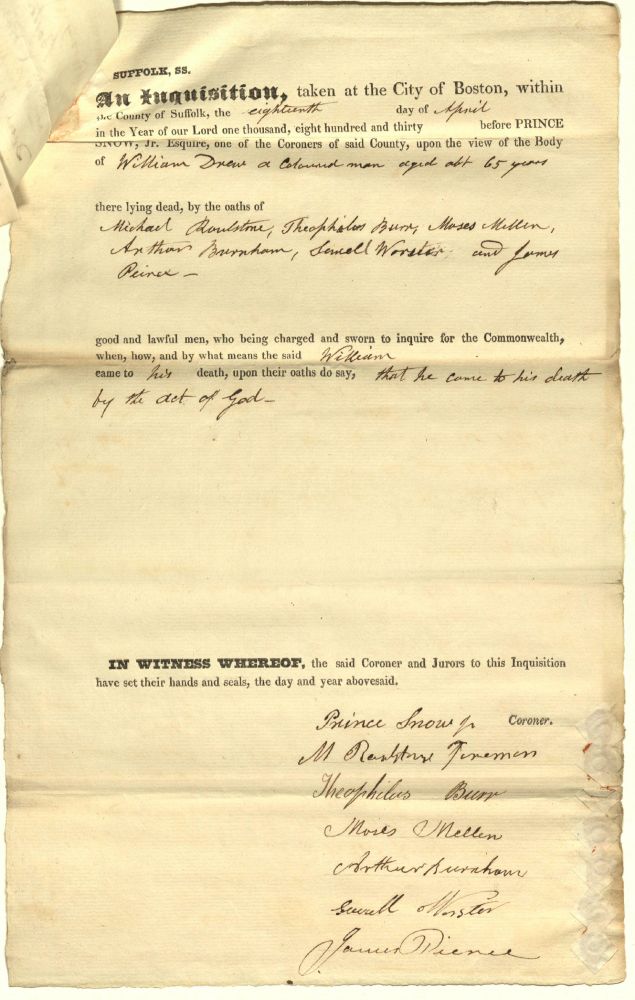 SUFFOLK, SS.
An Inquisition, taken at the City of Boston, within
the County of Suffolk, the eighteenth day of April
in the Year of our Lord one thousand, eight hundred and thirty before PRINCE
SNOW, Jr. Esquire, one of the Coroners of said County, upon the view of the Body
of William Drew a Coloured man aged abt 65 years
there lying dead, by the oaths of
Michael Roulstone, Theophilus Burr, Moses Mellen,
Arthur Burnham, Sewell Worster and James
Peirce –
good and lawful men, who being charged and sworn to inquire for the Commonwealth,
when, how, and by what means the said William
came to his death, upon their oaths do say, that he came to his death
by the act of God –
IN WITNESS WHEREOF, the said Coroner and Jurors to this Inquisition
have set their hands and seals, the day and year abovesaid.
Prince Snow Jr Coroner.
M Roulstone Foreman
Theophilus Burr
Moses Mellen
Arthur Burnham
Sewell Worster
James Pierce